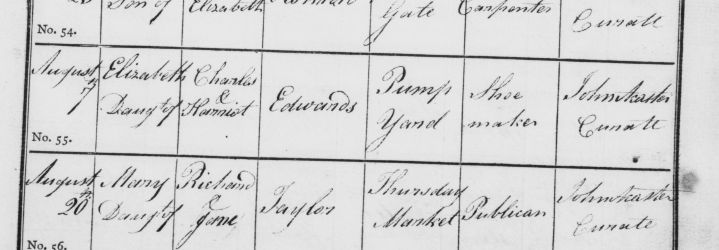 Son of Elizabeth Gate Carpenter Curate
No. 54.
August Elizabeth Charles Pump Shoe John
7 Daugt of & Harriot Edwards Yard maker Curate
No. 55.
August Mary Richard Thursday John
20 Daugt of & Jane Taylor Market Publican Curate
No. 56.